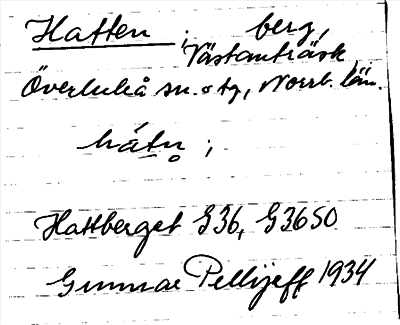 Hatten ; berg,
Västanträsk
Överluleå sn. o tg, Norrb. län.
hátn̥ ;
Hattberget G36, G36SO
Gunnar Pellijeff 1934